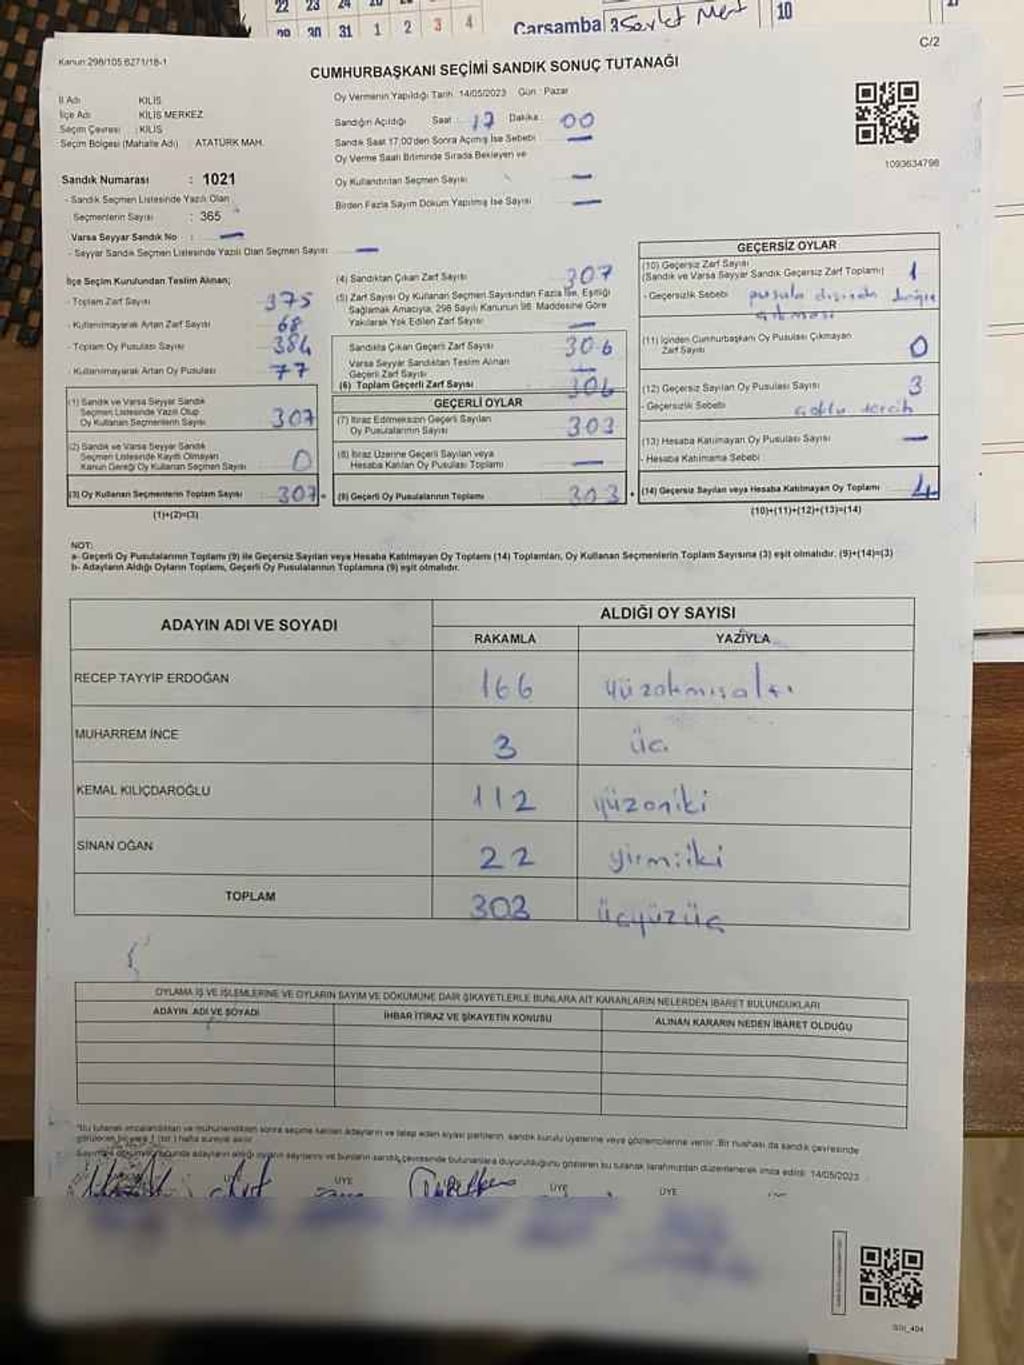 22 23 24
29 30 31 1 2 3 4
Çarsamba
10
C/2
Kanun 298/105 6271/18-1
CUMHURBAŞKANI SEÇİMİ SANDIK SONUÇ TUTANAĞI
İl Adı KİLİS
İlçe Adı KİLİS MERKEZ
Seçim Çevresi : KİLİS
Seçim Bölgesi (Mahalle Adı) : ATATÜRK MAH.
Oy Vermenin Yapıldığı Tarih :14/05/2023 Gün : Pazar
Sandığın Açıldığı Saat : 17 Dakika : 00
Sandık Saat 17:00'den Sonra Açılmış İse Sebebi —
Oy Verme Saati Bitiminde Sırada Bekleyen ve
Oy Kullandırılan Seçmen Sayısı —
Birden Fazla Sayım Döküm Yapılmış İse Sayısı —
1093634798
Sandık Numarası : 1021
- Sandık Seçmen Listesinde Yazılı Olan
Seçmenlerin Sayısı : 365
Varsa Seyyar Sandık No : —
- Seyyar Sandık Seçmen Listesinde Yazılı Olan Seçmen Sayısı —
İlçe Seçim Kurulundan Teslim Alınan;
- Toplam Zarf Sayısı 375
- Kullanılmayarak Artan Zarf Sayısı 68
- Toplam Oy Pusulası Sayısı 384
- Kullanılmayarak Artan Oy Pusulası 77
(1) Sandık ve Varsa Seyyar Sandık
Seçmen Listesinde Yazılı Olup
Oy Kullanan Seçmenlerin Sayısı 307
(2) Sandık ve Varsa Seyyar Sandık
Seçmen Listesinde Kayıtlı Olmayan
Kanun Gereği Oy Kullanan Seçmen Sayısı 0
(3) Oy Kullanan Seçmenlerin Toplam Sayısı 307
(1)+(2)=(3)
(4) Sandıktan Çıkan Zarf Sayısı 307
(5) Zarf Sayısı Oy Kullanan Seçmen Sayısından Fazla İse, Eşitliği
Sağlamak Amacıyla, 298 Sayılı Kanunun 98. Maddesine Göre
Yakılarak Yok Edilen Zarf Sayısı —
Sandıkta Çıkan Geçerli Zarf Sayısı 306
Varsa Seyyar Sandıktan Teslim Alınan
Geçerli Zarf Sayısı —
(6) Toplam Geçerli Zarf Sayısı 306
GEÇERLİ OYLAR
(7) İtiraz Edilmeksizin Geçerli Sayılan
Oy Pusulalarının Sayısı 303
(8) İtiraz Üzerine Geçerli Sayılan veya
Hesaba Katılan Oy Pusulası Toplamı —
(9) Geçerli Oy Pusulalarının Toplamı 303
GEÇERSİZ OYLAR
(10) Geçersiz Zarf Sayısı
(Sandık ve Varsa Seyyar Sandık Geçersiz Zarf Toplamı) 1
- Geçersizlik Sebebi pusula dışında
(11) İçinden Cumhurbaşkanı Oy Pusulası Çıkmayan
Zarf Sayısı 0
(12) Geçersiz Sayılan Oy Pusulası Sayısı 3
- Geçersizlik Sebebi çoklu tercih
(13) Hesaba Katılmayan Oy Pusulası Sayısı —
- Hesaba Katılmama Sebebi :
(14) Geçersiz Sayılan veya Hesaba Katılmayan Oy Toplamı 4
(10)+(11)+(12)+(13)=(14)
NOT:
a- Geçerli Oy Pusulalarının Toplamı (9) ile Geçersiz Sayılan veya Hesaba Katılmayan Oy Toplamı (14) Toplamları, Oy Kullanan Seçmenlerin Toplam Sayısına (3) eşit olmalıdır. (9)+(14)=(3)
b- Adayların Aldığı Oyların Toplamı, Geçerli Oy Pusulalarının Toplamına (9) eşit olmalıdır.
ADAYIN ADI VE SOYADI
ALDIĞI OY SAYISI
RAKAMLA YAZIYLA
RECEP TAYYİP ERDOĞAN 166 yüzaltmışaltı
MUHARREM İNCE 3 üç
KEMAL KILIÇDAROĞLU 112 yüzoniki
SİNAN OĞAN 22 yirmiiki
TOPLAM 303 üçyüzüç
OYLAMA İŞ VE İŞLEMLERİNE VE OYLARIN SAYIM VE DÖKÜMÜNE DAİR ŞİKAYETLERLE BUNLARA AİT KARARLARIN NELERDEN İBARET BULUNDUKLARI
ADAYIN ADI VE SOYADI İHBAR İTİRAZ VE ŞİKAYETİN KONUSU ALINAN KARARIN NEDEN İBARET OLDUĞU
"Bu tutanak imzalandıktan ve mühürlendikten sonra seçime katılan adayların ve talep eden siyasi partilerin, sandık kurulu üyelerine veya gözlemcilerine verilir. Bir nüshası da sandık çevresinde
görülecek bir yere 1 (bir) hafta süreyle asılır
adayların aldığı oyların sayılarını ve bunların sandık çevresinde bulunanlara duyurulduğunu gösteren bu tutanak tarafımızdan düzenlenerek imza edildi 14/05/2023
ÜYE ÜYE ÜYE ÜYE